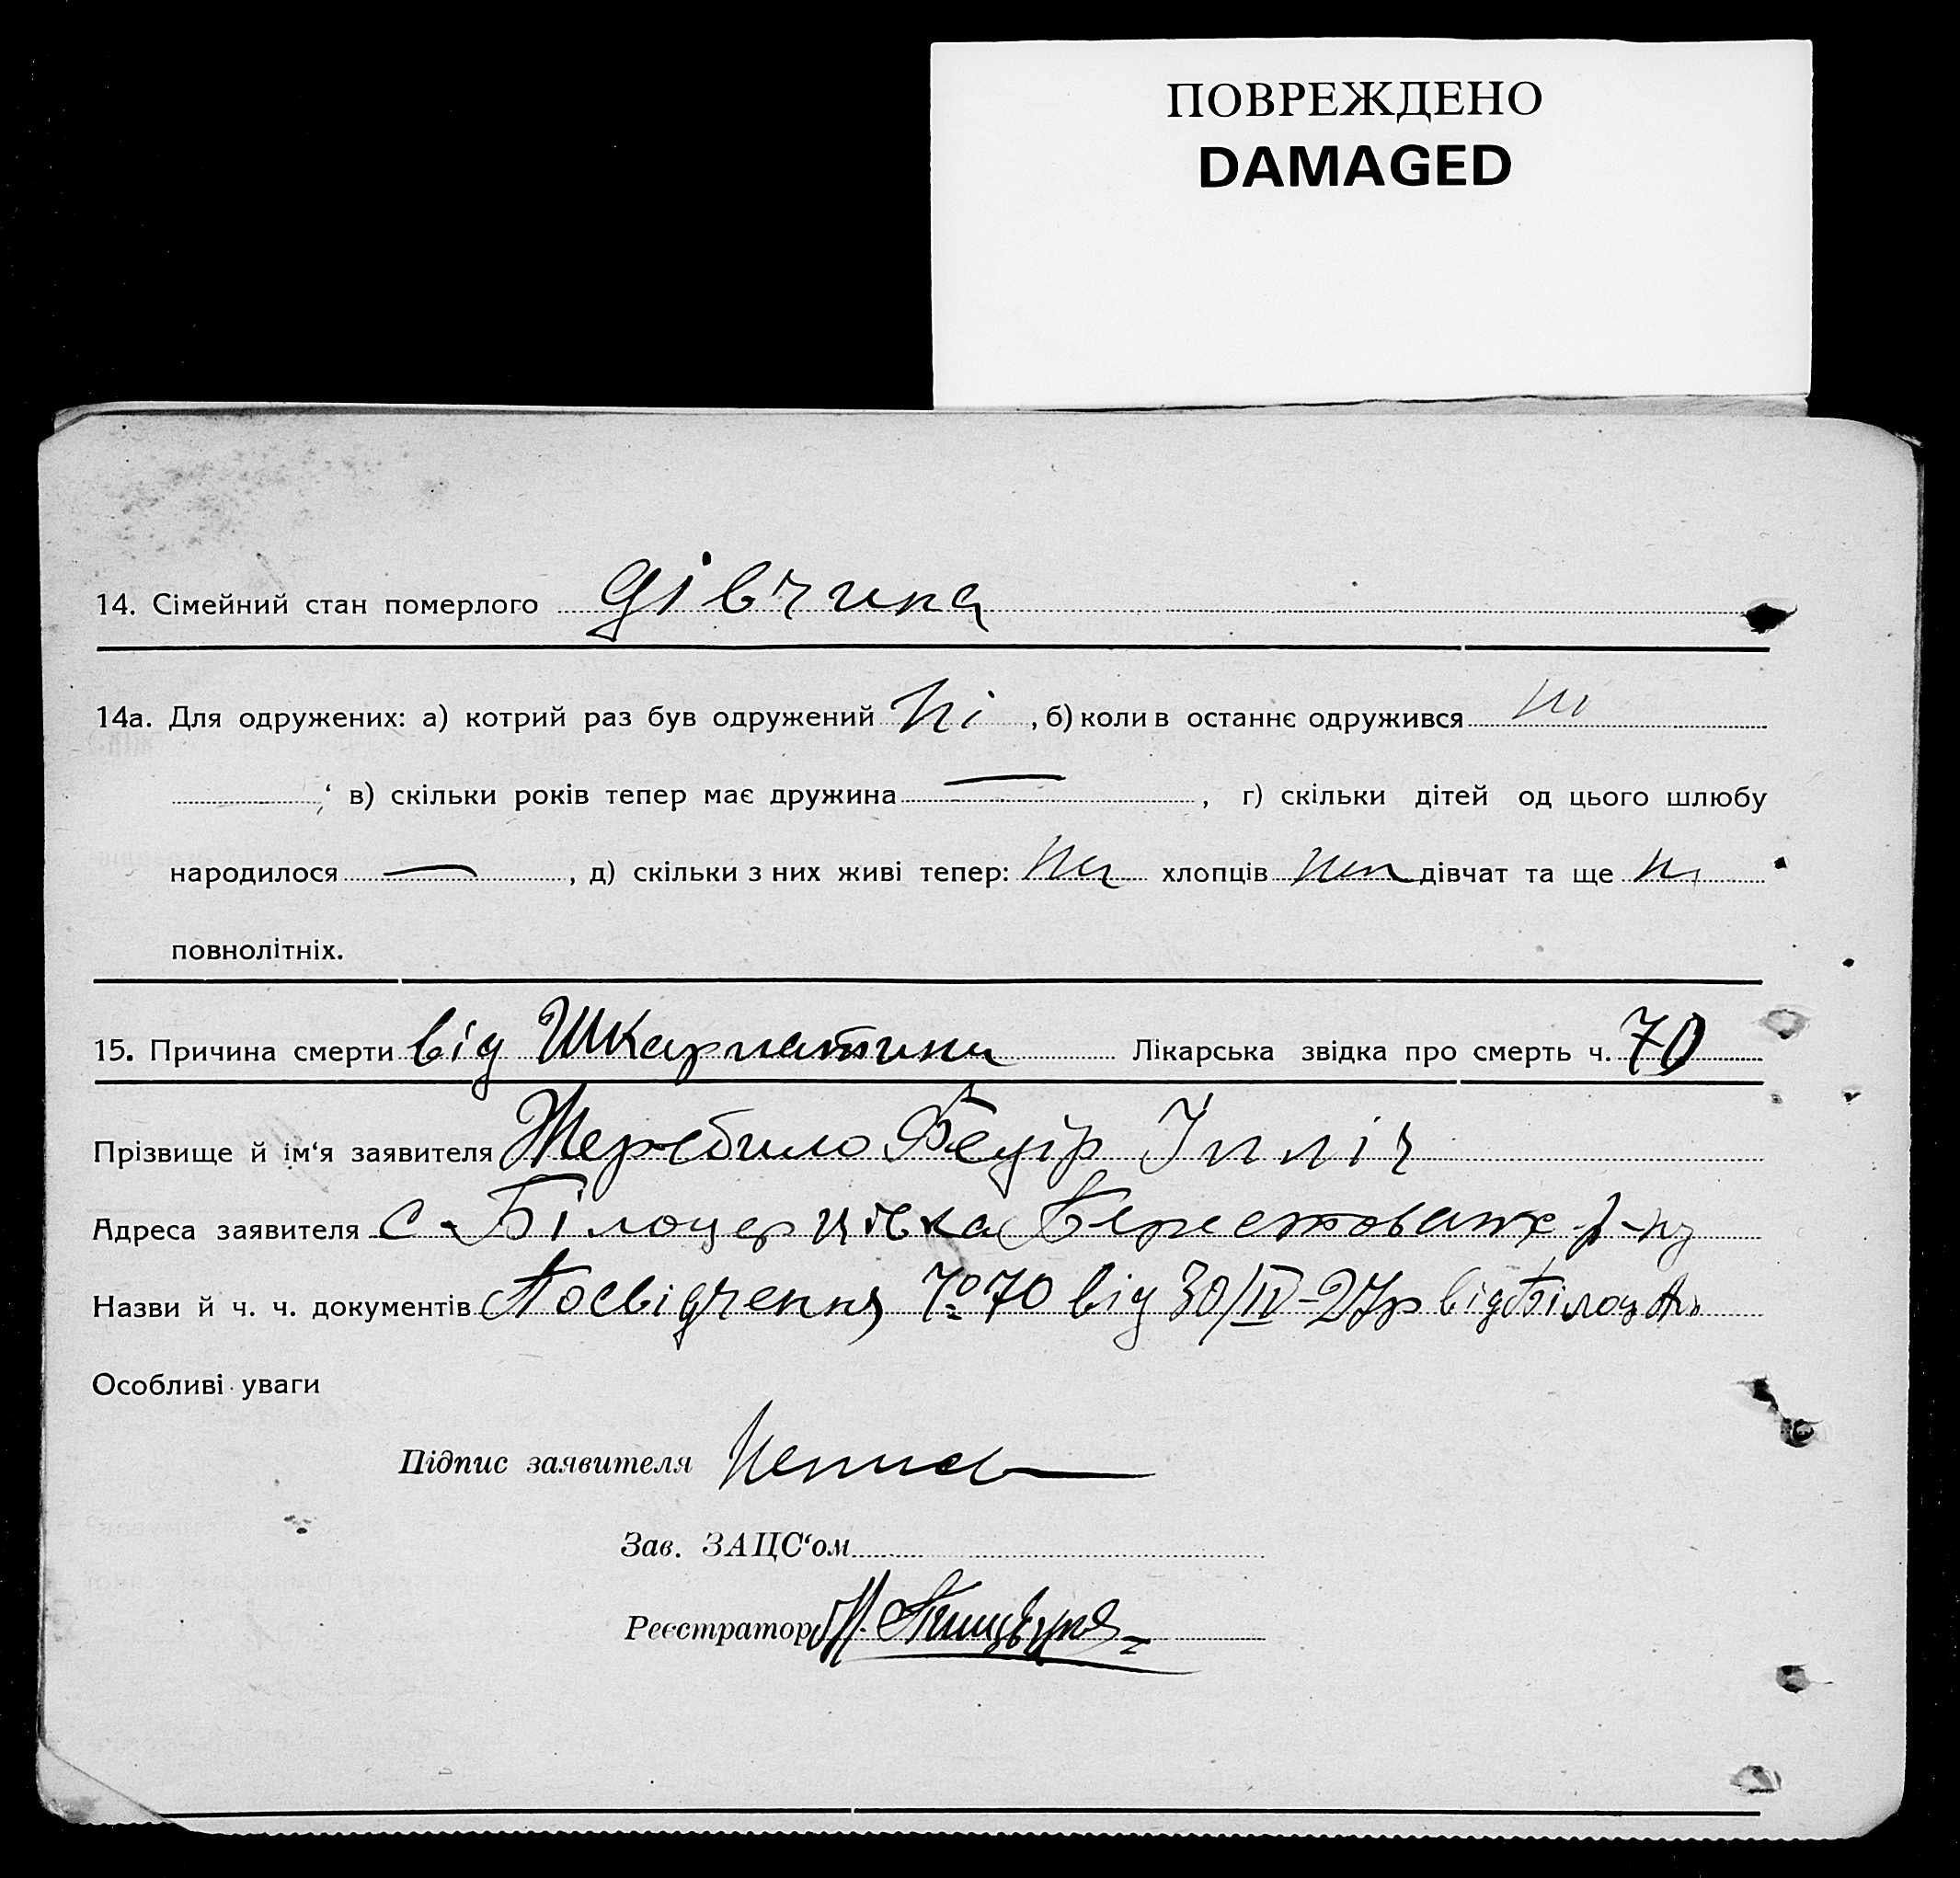 ПОВРЕЖДЕНО
DAMAGED
14. Сімейний стан померлого дівчина
14а. Для одружених: а) котрий раз був одружений ні , б) коли в останнє одружився ні
, в) скільки років тепер має дружина — , г) скільки дітей од цього шлюбу
народилося — , д) скільки з них живі тепер: хлопців дівчат та ще
повнолітніх.
15. Причина смерти від Шкарлатини Лікарська звідка про смерть ч. 70
Прізвище й ім‘я заявителя Жеребило Ілліч
Адреса заявителя с. Білоцерцівка р-ну
Назви й ч. ч. документів Посвідчення № 70 від 30/IV-27р від
Особливі уваги
Підпис заявителя
Зав. ЗАЦС‘ом
Реєстратор